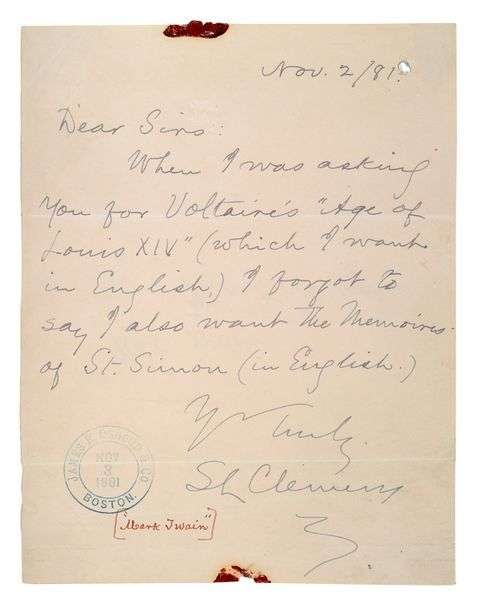 Nov. 2/81.
Dear Sirs:
When I was asking
you for Voltaire's "Age of
Louis XIV" (which I want
in English.) I forgot to
say I also want the Memoires
of St. Simon (in English.)
Yr Truly
SL Clemens
JAMES R. OSGOOD & CO
NOV
3
1881
BOSTON.
["Mark Twain"]